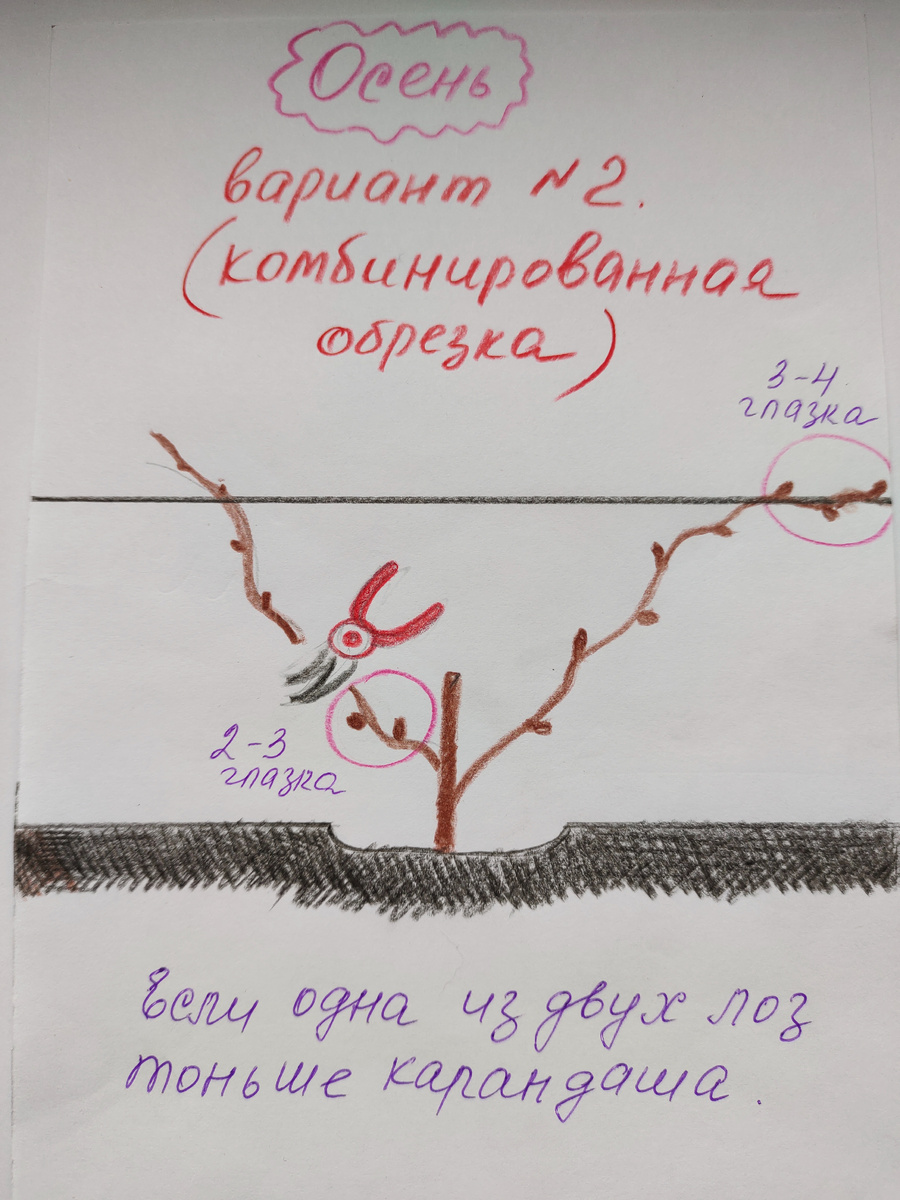 Осень
вариант №2.
(комбинированная
обрезка)
3-4
глазка
2-3
глазка
Если одна из двух лоз
тоньше карандаша.